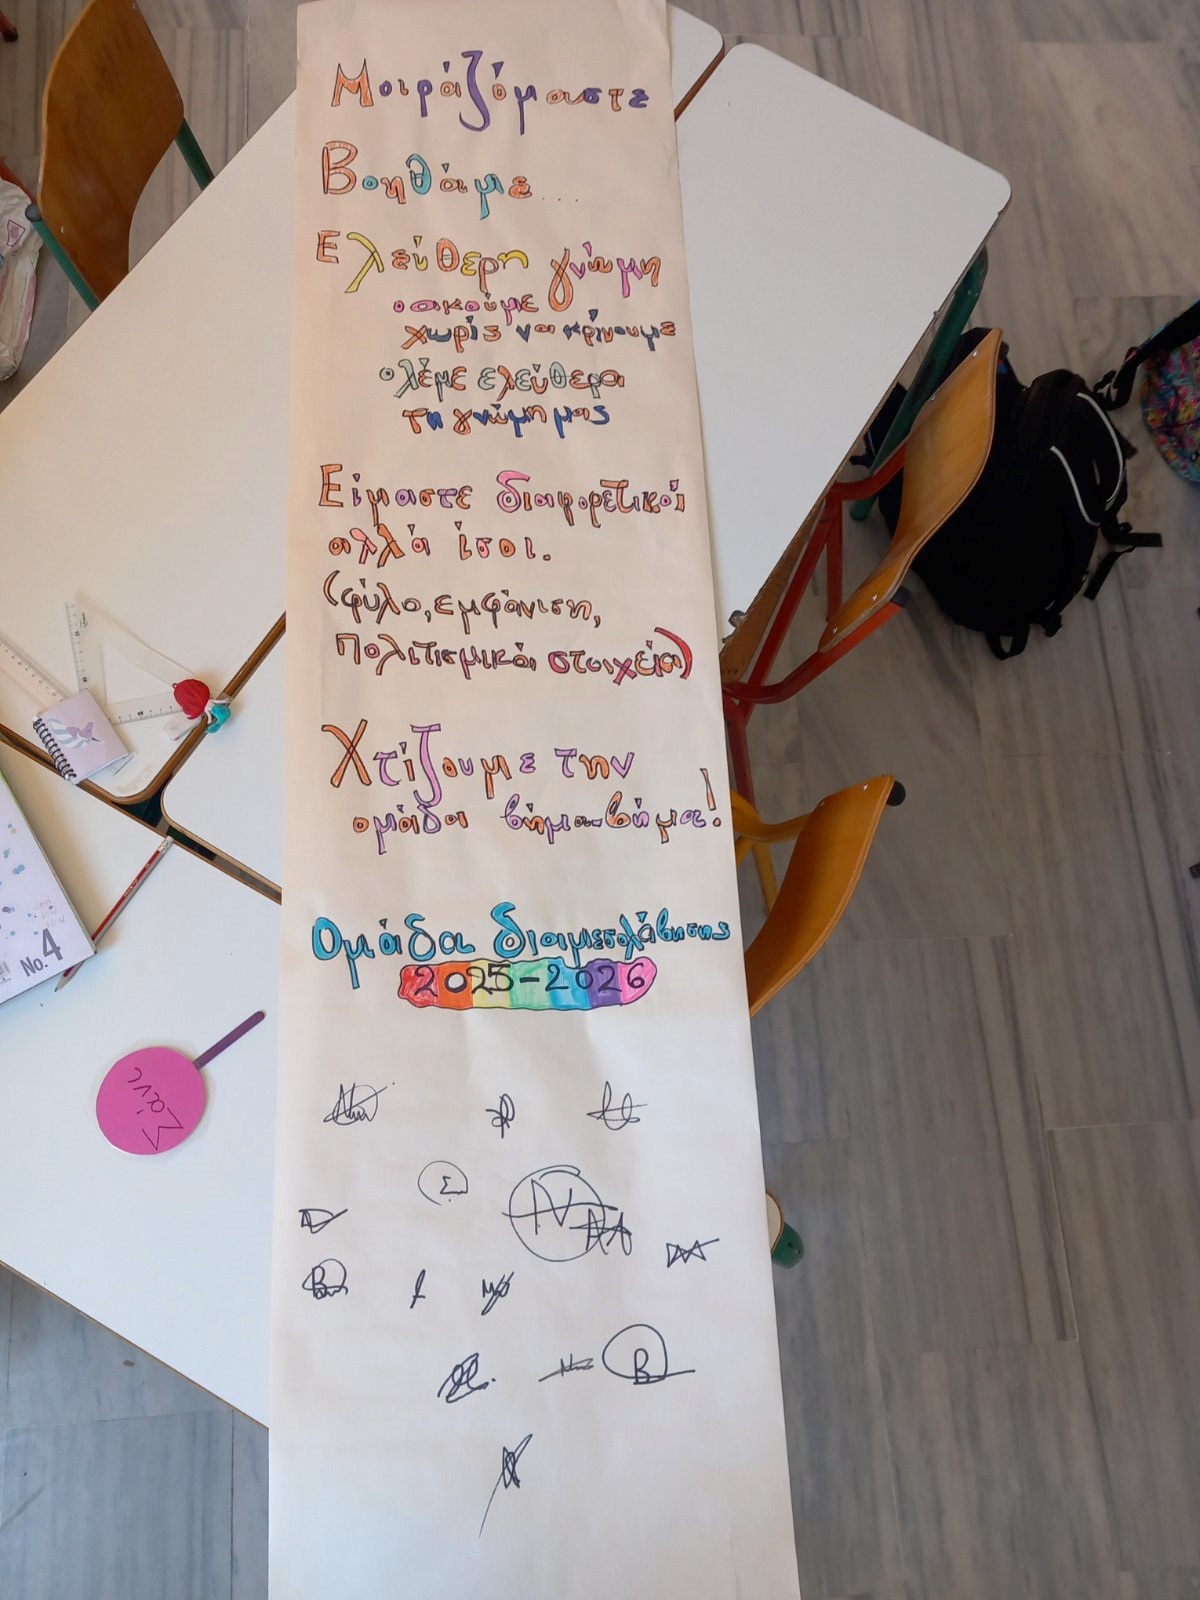 Μοιραζόμαστε
Βοηθάμε...
Ελεύθερη γνώμη
οακούμε
χωρίς να κρίνουμε
ολέμε ελεύθερα
τη γνώμη μας
Είμαστε διαφορετικοί
αλλά ίσοι.
(φύλο, εμφάνιση,
πολιτισμικά στοιχεία)
Χτίζουμε την
ομάδα βήμα-βήμα!
Ομάδα διαμεσολάβησης
2025-2026
No.4
Σάνι